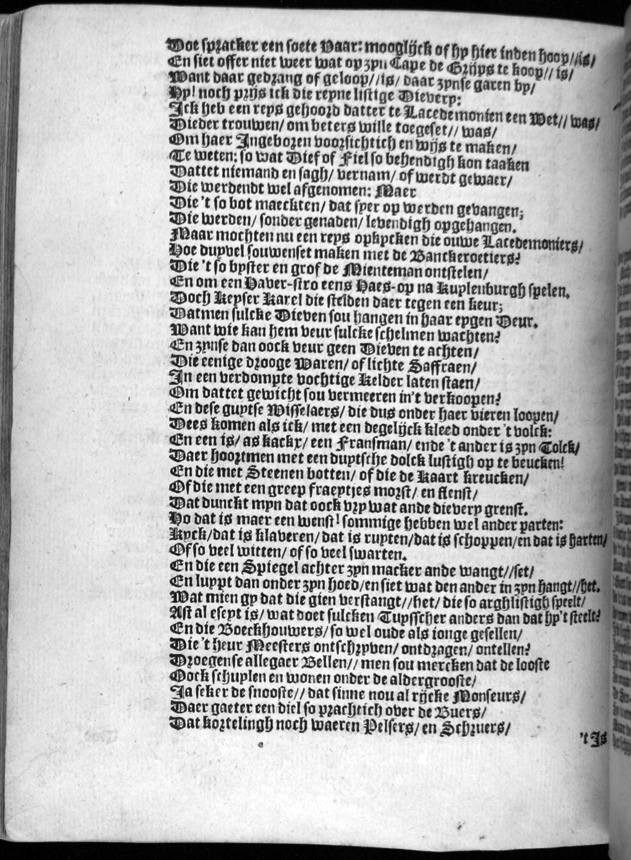 Doe spratker een soete Vaar: mooglijck of hy hier inden hoop//is/
En siet offer niet weer wat op zyn Cape de Grijps te koop// is/
Want daar gedrang of geloop//is/ daar zynse garen by/
Hy! noch prijs ick die reyne listige Dievery:
Ick heb een reys gehoord datter te Lacedemonien een Wet// was/
Dieder trouwen/ om beters wille toegeset// was/
Om haer Ingeboren voorsichtich en wijs te maken/
Te weten: so wat Dief of Fiel so behendigh kon taaken
Dattet niemand en sagh/ vernam/ of werdt gewaer/
Die werdendt wel afgenomen: Maer
Die 't so bot maeckten/ dat syer op werden gevangen;
Die werden/ sonder genaden/ levendigh opgehangen.
Maar mochten nu een reys opkycken die ouwe Lacedemoniers/
Hoe duyvel souwenset maken met de Banckeroetiers?
Die 't so byster en grof de Mienteman ontstelen/
En om een Haver-stro eens Haes-op na Kuylenburgh spelen.
Doch Keyser Karel die stelden daer tegen een keur;
Datmen sulcke Dieven sou hangen in haar eygen Deur.
Want wie kan hem veur sulcke schelmen wachten?
En zynse dan oock veur geen Dieven te achten/
Die eenige drooge Waren/ of lichte Saffraen/
In een verdompte vochtige Kelder laten staen/
Om dattet gewicht sou vermeeren in't verkoopen?
En dese guytse Wisselaers/ die dus onder haer vieren loopen/
Dees komen als ick/ met een degelijck kleed onder 't volck:
En een is/ as kackx/ een Fransman/ ende 't ander is zyn Tolck/
Daer hoortmen met een duytsche dolck lustigh op te beucken!
En die met Steenen botten/ of die de Kaart kreucken/
Of die met een greep fraeytjes morst/ en flenst/
Dat dunckt myn dat oock vry wat ande dievery grenst.
Ho dat is maer een wenst! sommige hebben wel ander parten:
Kyck/dat is klaveren/ dat is ruyten/dat is schoppen/en dat is harten/
Of so veel witten/ of so veel swarten.
En die een Spiegel achter zyn macker ande wangt//set/
En luypt dan onder zyn hoed/en siet wat den ander in zyn hangt//het.
Wat mien gy dat die gien verstangt//het/ die so arghlistigh speelt/
Ast al eseyt is/ wat doet sulcken Tuysscher anders dan dat hy't steelt?
En die Boeckhouwers/ so wel oude als ionge gesellen/
Die 't heur Meesters ontschryven/ ontdragen/ ontellen?
Droegense allegaer Bellen// men sou mercken dat de looste
Oock schuylen en wonen onder de aldergrooste/
Ja seker de snooste// dat sinne nou al rijcke Monseurs/
Daer gaeter een diel so prachtich over de Buers/
Dat kortelingh noch waeren Pelsers/ en Schruers/
't Is